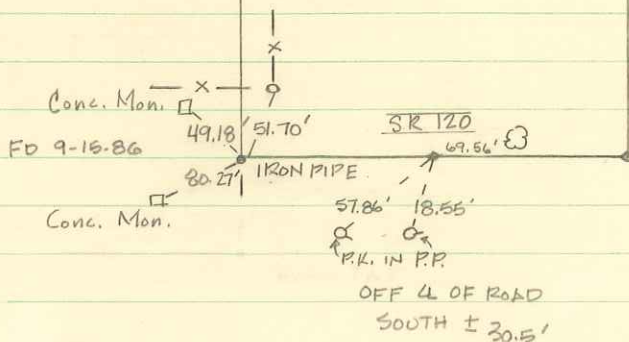 Conc. Mon.
49.18'
51.70'
SR 120
FD 9-15-86
69.56'
80.27'
IRON PIPE
Conc. Mon.
57.86'
18.55'
P.K. IN P.P.
OFF ℄ OF ROAD
SOUTH ± 30.5'